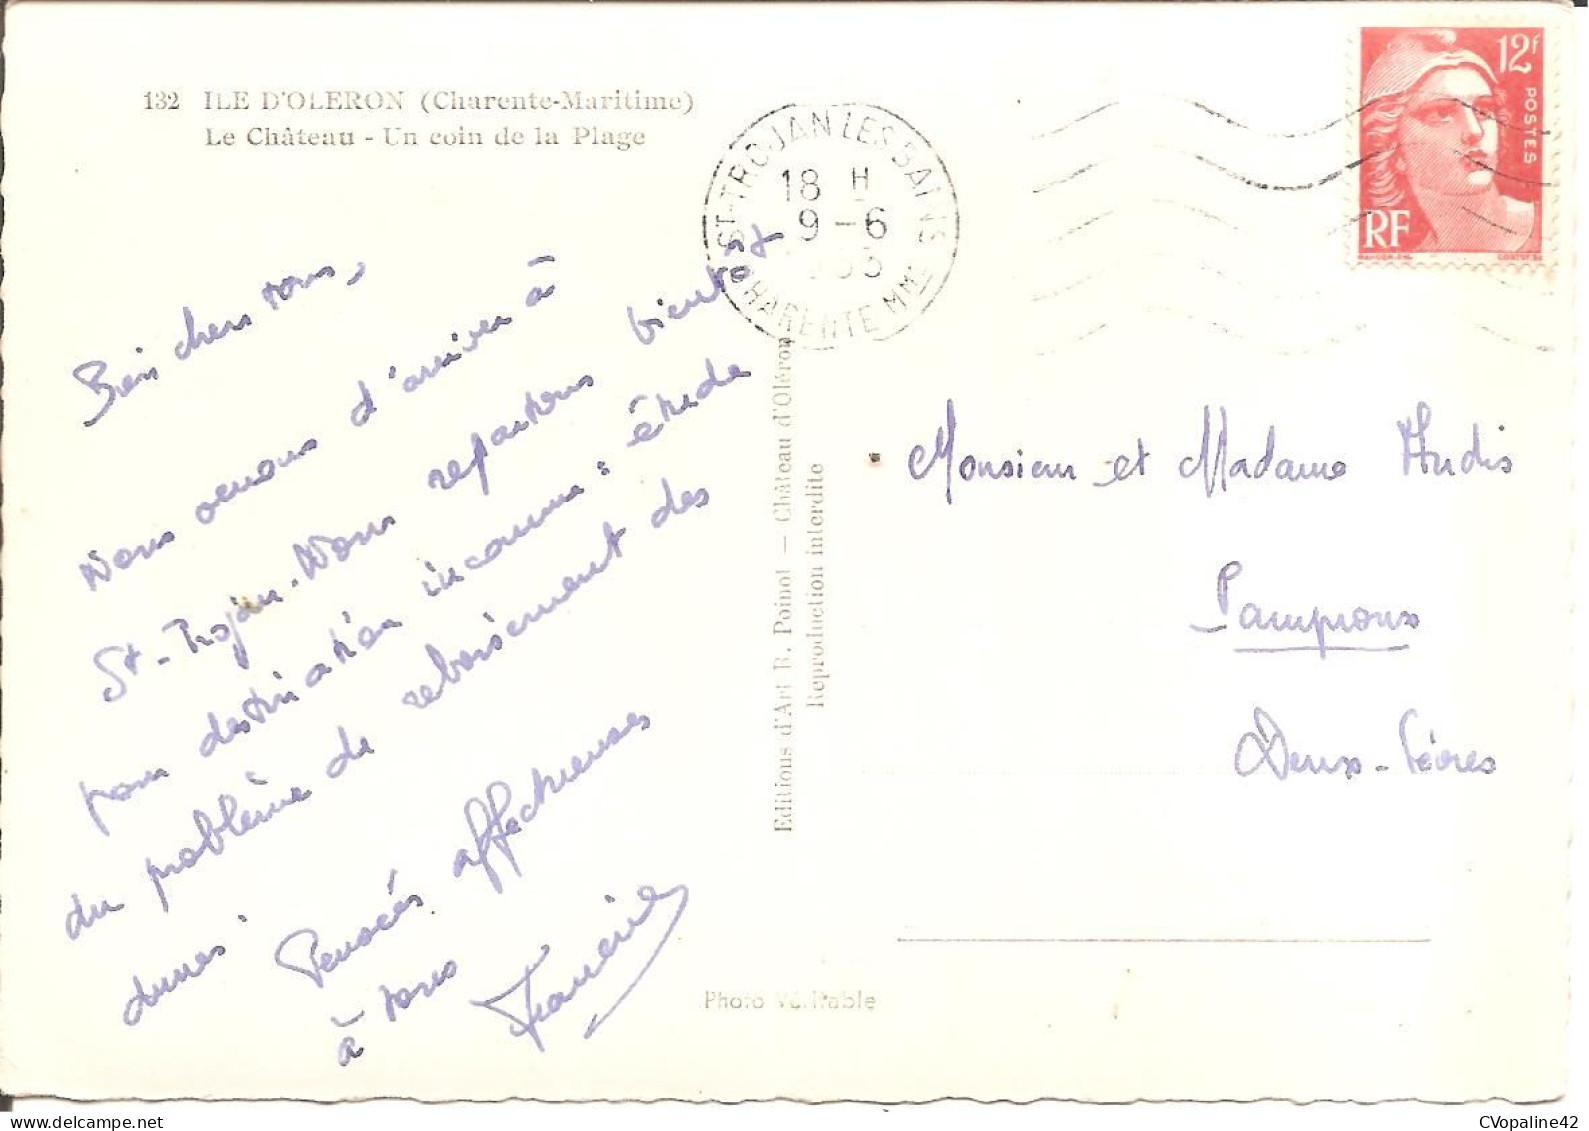 132 ILE D'OLERON (Charente-Maritime)
Le Château - Un coin de la Plage
ST-TROJAN LES BAINS
18 H
9-6
1953
CHARENTE MME
12F
POSTES
RF
Bien chers tous,
Nous venons d'arriver à
St-Trojan. Nous repartons bientôt
pour destination inconnue: étude
du problème de reboisement des
dunes.
Pensées affectueuses
à tous
Editions d'Art R. Poinot - Château d'Oléron
Reproduction interdite
Monsieur et Madame
Pamproux
Deux-Sèvres
Photo Véritable
CVopaline42